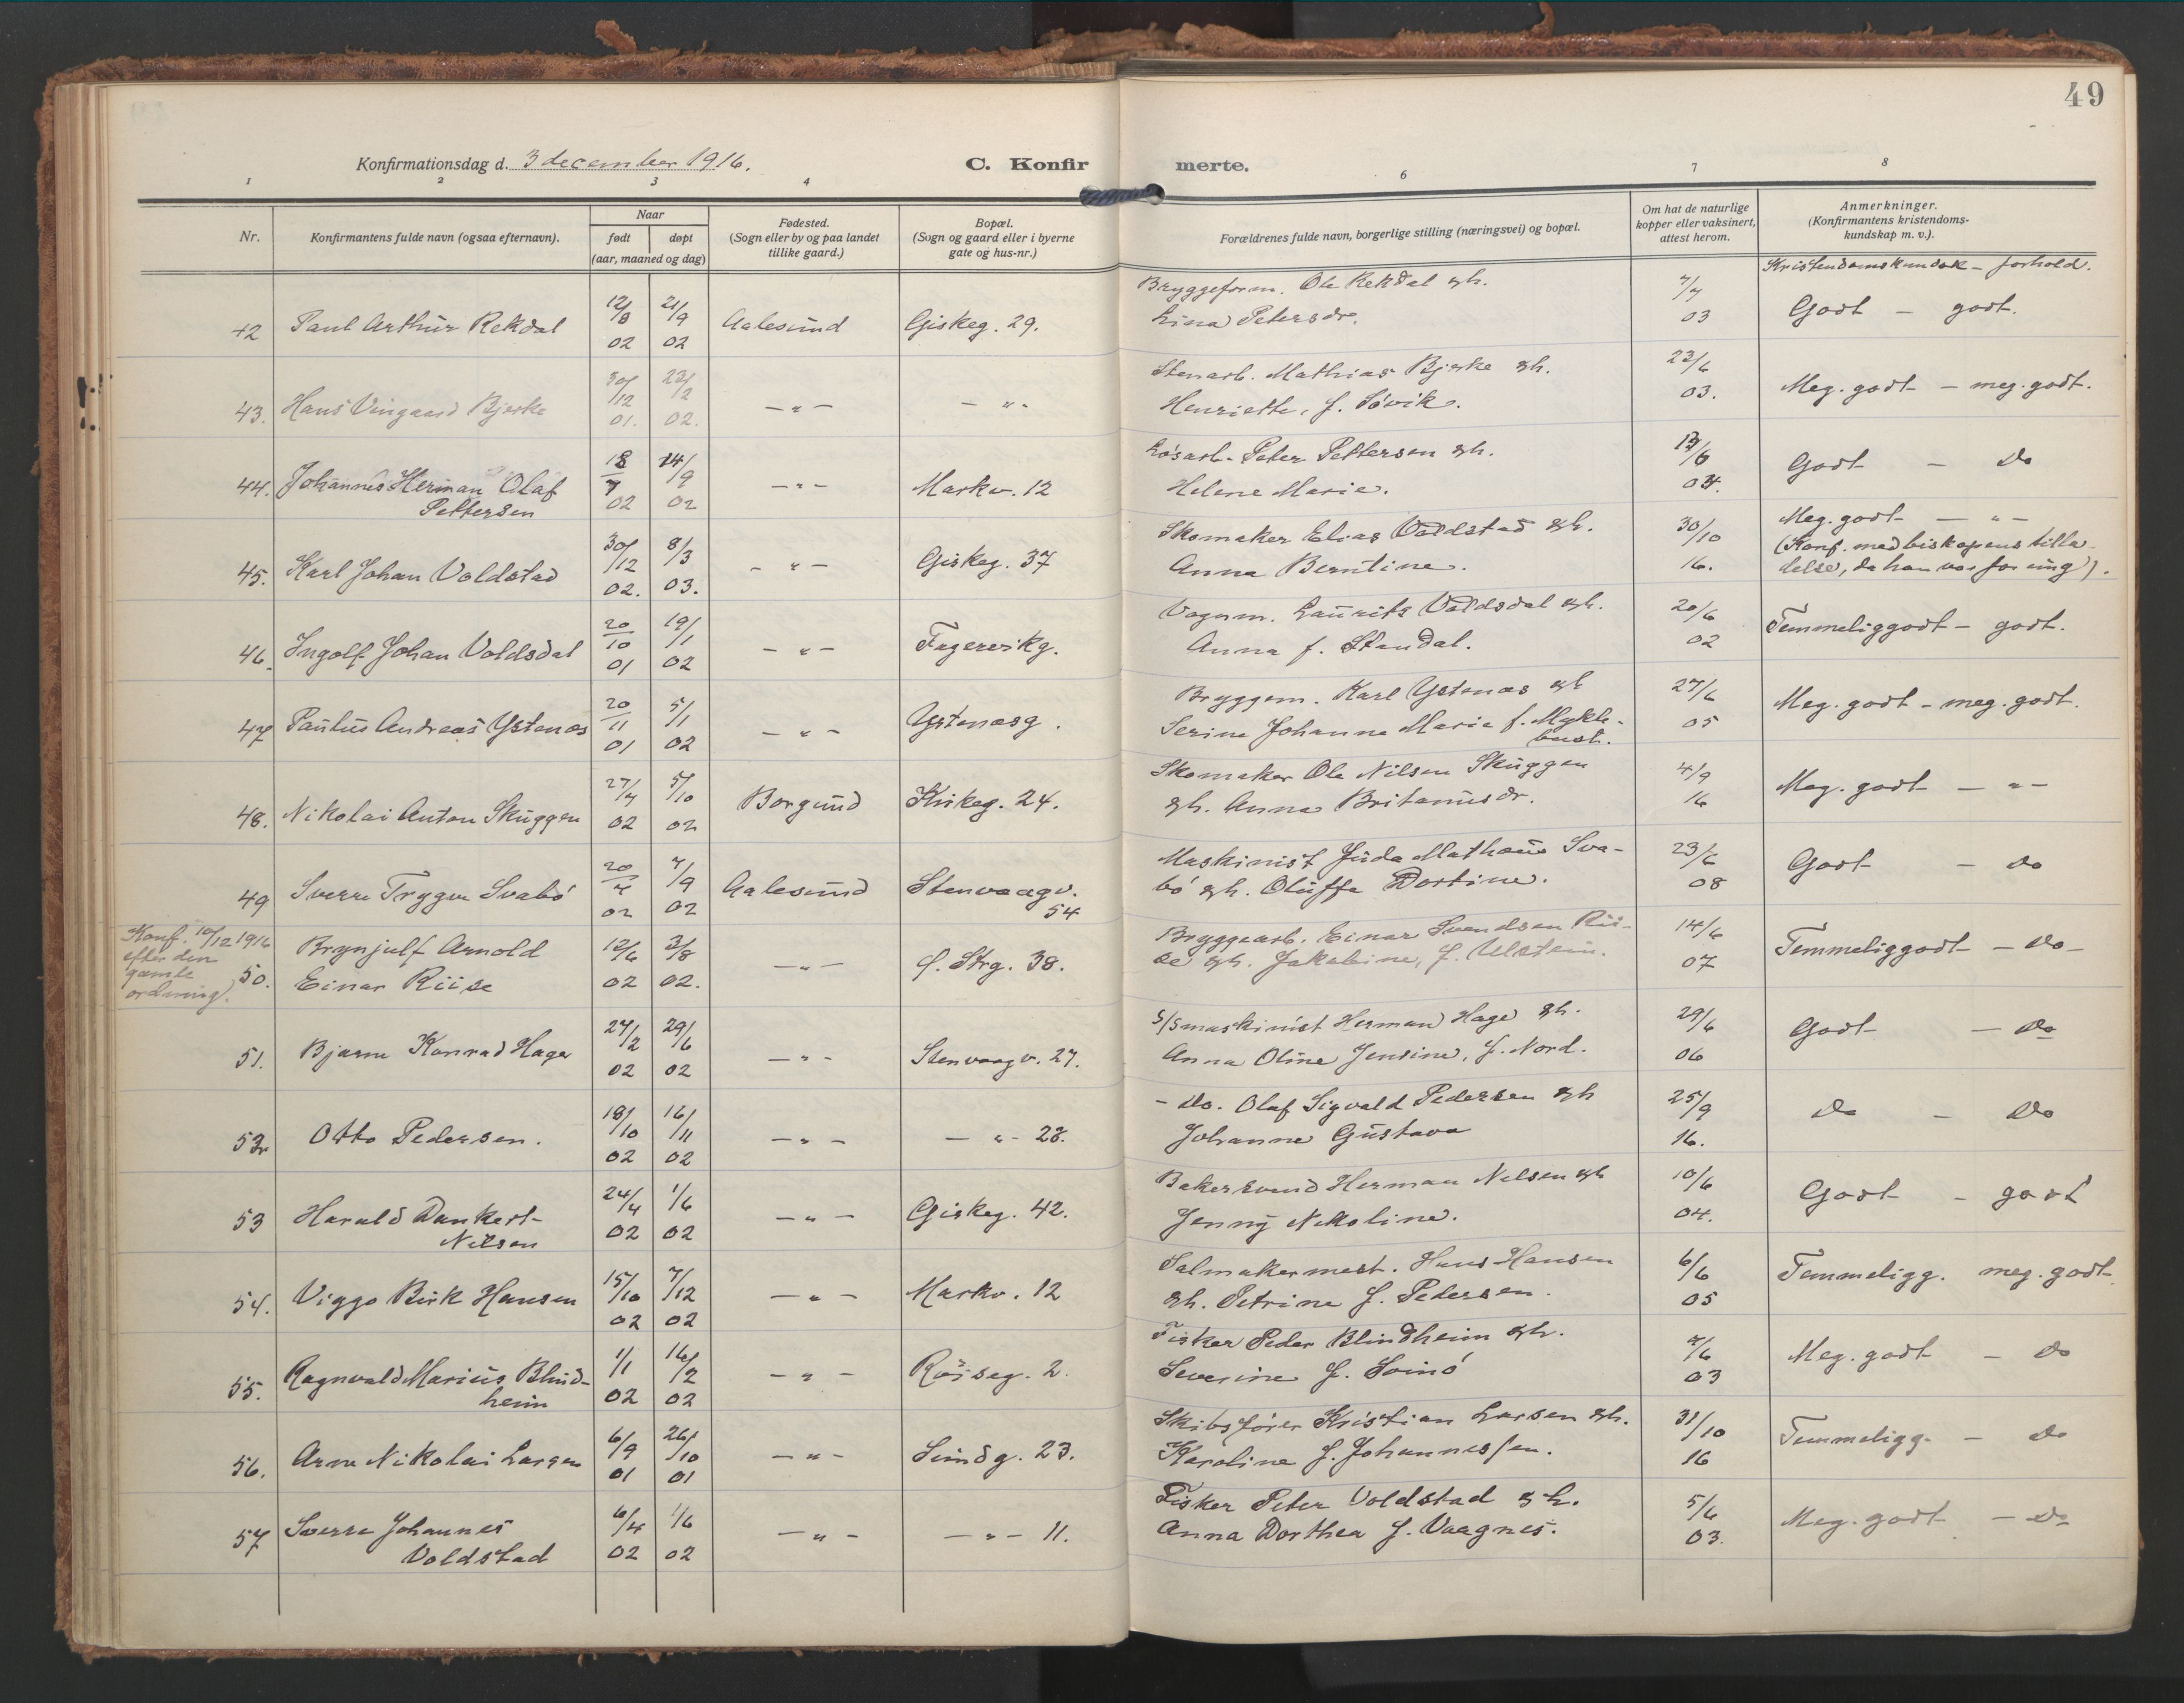 49
Konfirmationsdag d. 3 december 1916.
C. Konfir merte.
1 2 3 4 6 7 8
Nr.
Konfirmantens fulde navn (ogsaa efternavn).
Naar
født døpt
(aar, maaned og dag)
Fødested.
(Sogn eller by og paa landet
tillike gaard.)
Bopæl.
(Sogn og gaard eller i byerne
gate og hus-nr.)
Forældrenes fulde navn, borgerlige stilling (næringsvei) og bopæl.
Om hat de naturlige
kopper eller vaksinert,
attest herom.
Anmerkninger.
(Konfirmantens kristendoms-
kundskap m. v.).
Kristendomskundsk - forhold.
42 Paul Arthur Rekdal 12/8 02 21/9 02 Aalesund Giskeg. 29.
Bryggeform. Ole Rekdal gh.
Lina Petersdr. 7/7 03 Godt - godt.
43. Hans Vingaard Bjerke 30/12 01. 23/2 02. -"- -"-
Stenarb. Mathias Bjerke gh.
Henriette, f. Søvik. 23/6 03. Meg. godt - meg. godt.
44. Johannes Herman Olaf
Pettersen 18/7 02 14/9 02 -"- Markv. 12
Løsarb. Peter Pettersen gh.
Helene Marie. Godt - Do
45. Karl Johan Voldstad 30/12 02. 8/3 03. -"- Giskeg. 37
Skomaker Elias Voldstad gh.
Anna Berntine. 30/10 16. Meg. godt - " -
(Konf. med biskopens tilla-
delse, da han var for ung).
46. Ingolf Johan Voldsdal 20/10 01 19/1 02 -"- Fagervikg.
Vognm. Laurits Voldsdal gh.
Anna f. Standal. 20/6 02 Temmeliggodt - godt.
47 Paulus Andreas Ystenæs 20/11 01 5/1 02 -"- Ystenæsg.
Bryggem. Karl Ystenæs gh
Serine Johanne Marie f. Mykle-
bust. 27/6 05 Meg. godt - meg. godt.
48. Nikolai Anton Skuggen 27/7 02 5/10 02 Borgund Kirkeg. 24.
Skomaker Ole Nilsen Skuggen
gh. Anna Britanusdr. 4/9 16 Meg. godt - " -
49 Sverre Trygve Svabø 20/7 02 7/9 02 Aalesund Stenvaagv.
54
Maskinist Juda Mathæus Sva-
bø gh. Oluffa Dortine. 23/6 08 Godt - do
Konf. 10/12 1916
efter den
gamle
ordning).
50. Brynjulf Arnold
Einar Riise 12/6 02 3/8 02. -"- Ø. Strg. 38.
Bryggearb. Einar Svendsen Rii-
se gh. Jakobine, f. Ulstein. 14/6 07 Temmeliggodt - do -
51. Bjarne Konrad Hage 27/2 02 29/6 02 -"- Stenvaagv. 27.
S/Smaskinist Herman Hage gh.
Anna Oline Jensine, f. Nord. 29/6 06 Godt - Do
52 Otto Pedersen. 18/10 02 16/11 02 -"- -"- 28.
- do. Olaf Sigvald Pedersen gh
Johanne Gustava 25/9 16. Do - Do
53 Harald Dankert-
Nilsen 24/4 02 1/6 02 -"- Giskeg. 42.
Bakersvend Herman Nilsen gh
Jenny Nikoline. 10/6 04. Godt - godt
54. Viggo Birk Hansen 15/10 02 7/12 02 -"- Markv. 12
Salmakermest. Hans Hansen
gh. Petrine f. Pedersen. 6/6 05 Temmeligg. meg. godt
55. Ragnvald Marius Blind-
heim 1/1 02 16/2 02 -"- Røiseg. 2.
Fisker Peder Blindheim gh.
Severine f. Svinø 7/6 03 Meg. godt - Do
56. Arne Nikolai Larsen 6/9 01 26/10 01 -"- Sundg. 23.
Skibsfører Kristian Larsen gh.
Karoline f. Johannessen. 31/10 16 Temmeligg. - Do
57 Sverre Johannes
Voldstad 6/4 02 1/6 02 -"- -"- 11.
Fisker Peter Voldstad gh.
Anna Dorthea f. Vaagnes. 5/6 03. Meg. godt - Do